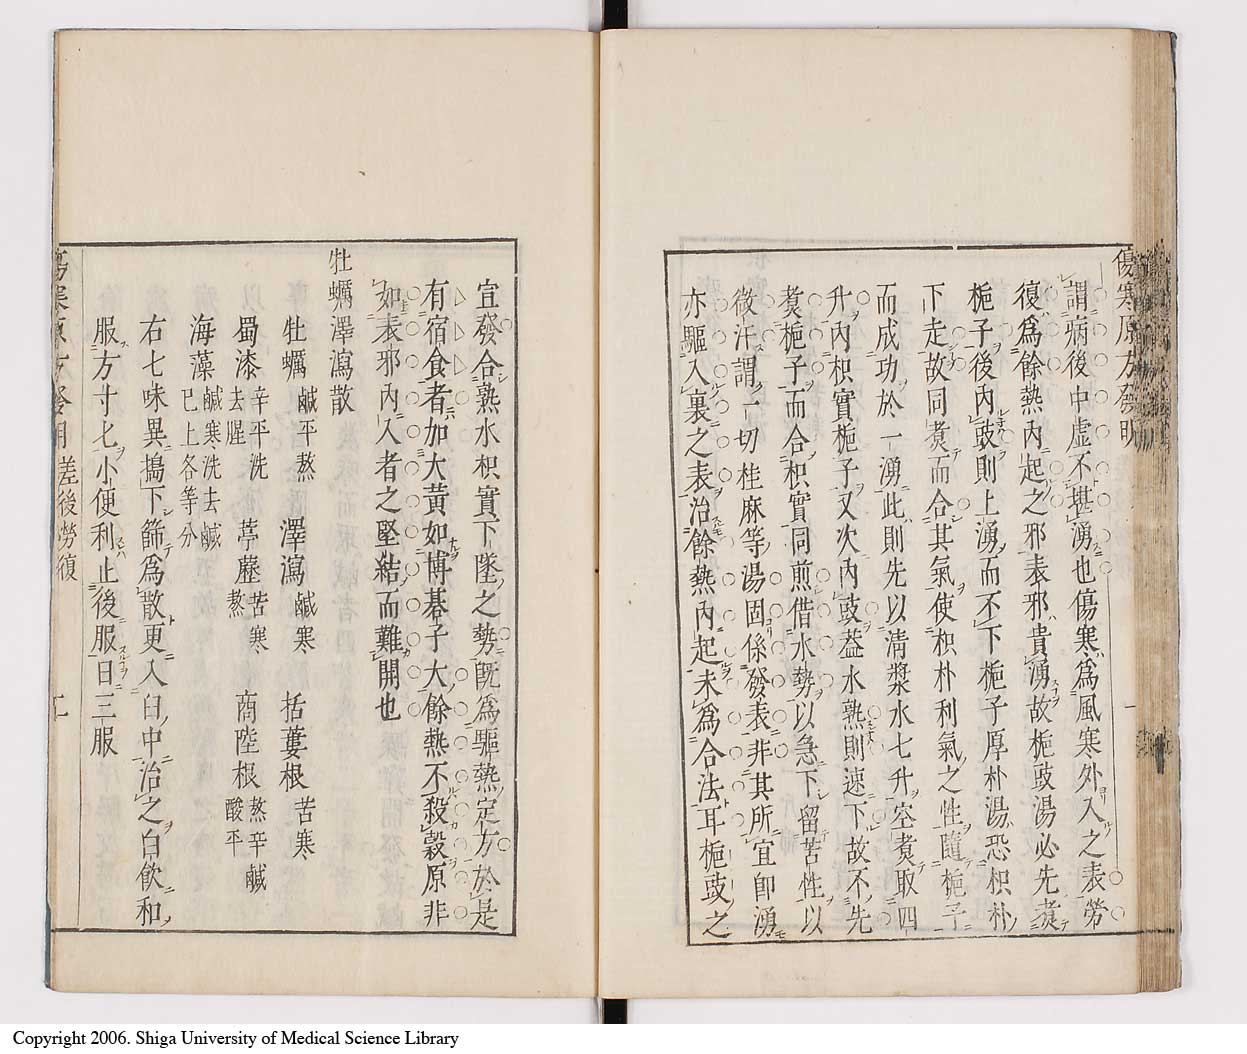 傷寒原方發明
謂病後中虛不堪湧也傷寒爲風寒外入之表勞
復爲餘熱內起之邪表邪貴湧故梔豉湯必先煮
梔子後內豉則上湧而不下梔子厚朴湯恐枳朴
下走故同煮而合其氣使枳朴利氣之性隨梔子
而成功於一湧此則先以清漿水七升空煮取四
升內枳實梔子又次內豉益水熟則速下故不先
煮梔子而合枳實同煎借水勢以急下留苦性以
微汗謂一切桂麻等湯固係發表非其所宜卽湧
亦驅入裏之表治餘熱內起未爲合法耳梔豉之
宜發合熟水枳實下墜之勢既爲驅熱定方於是
有宿食者加大黃如博碁子大餘熱不殺穀原非
如表邪內入者之堅結而難開也
牡蠣澤瀉散
牡蠣 鹹平熬 澤瀉 鹹寒 括蔞根 苦寒
蜀漆 辛平洗去腥 葶藶 苦寒熬 商陸根 熬辛鹹酸平
海藻 鹹寒洗去鹹已上各等分
右七味異搗下篩爲散更入臼中治之白飲和
服方寸匕小便利止後服日三服
傷寒原方發明 差後勞復
Copyright 2006. Shiga University of Medical Science Library